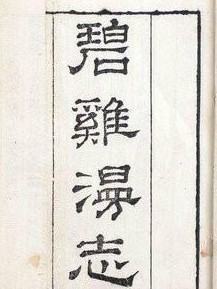 碧雞漫志